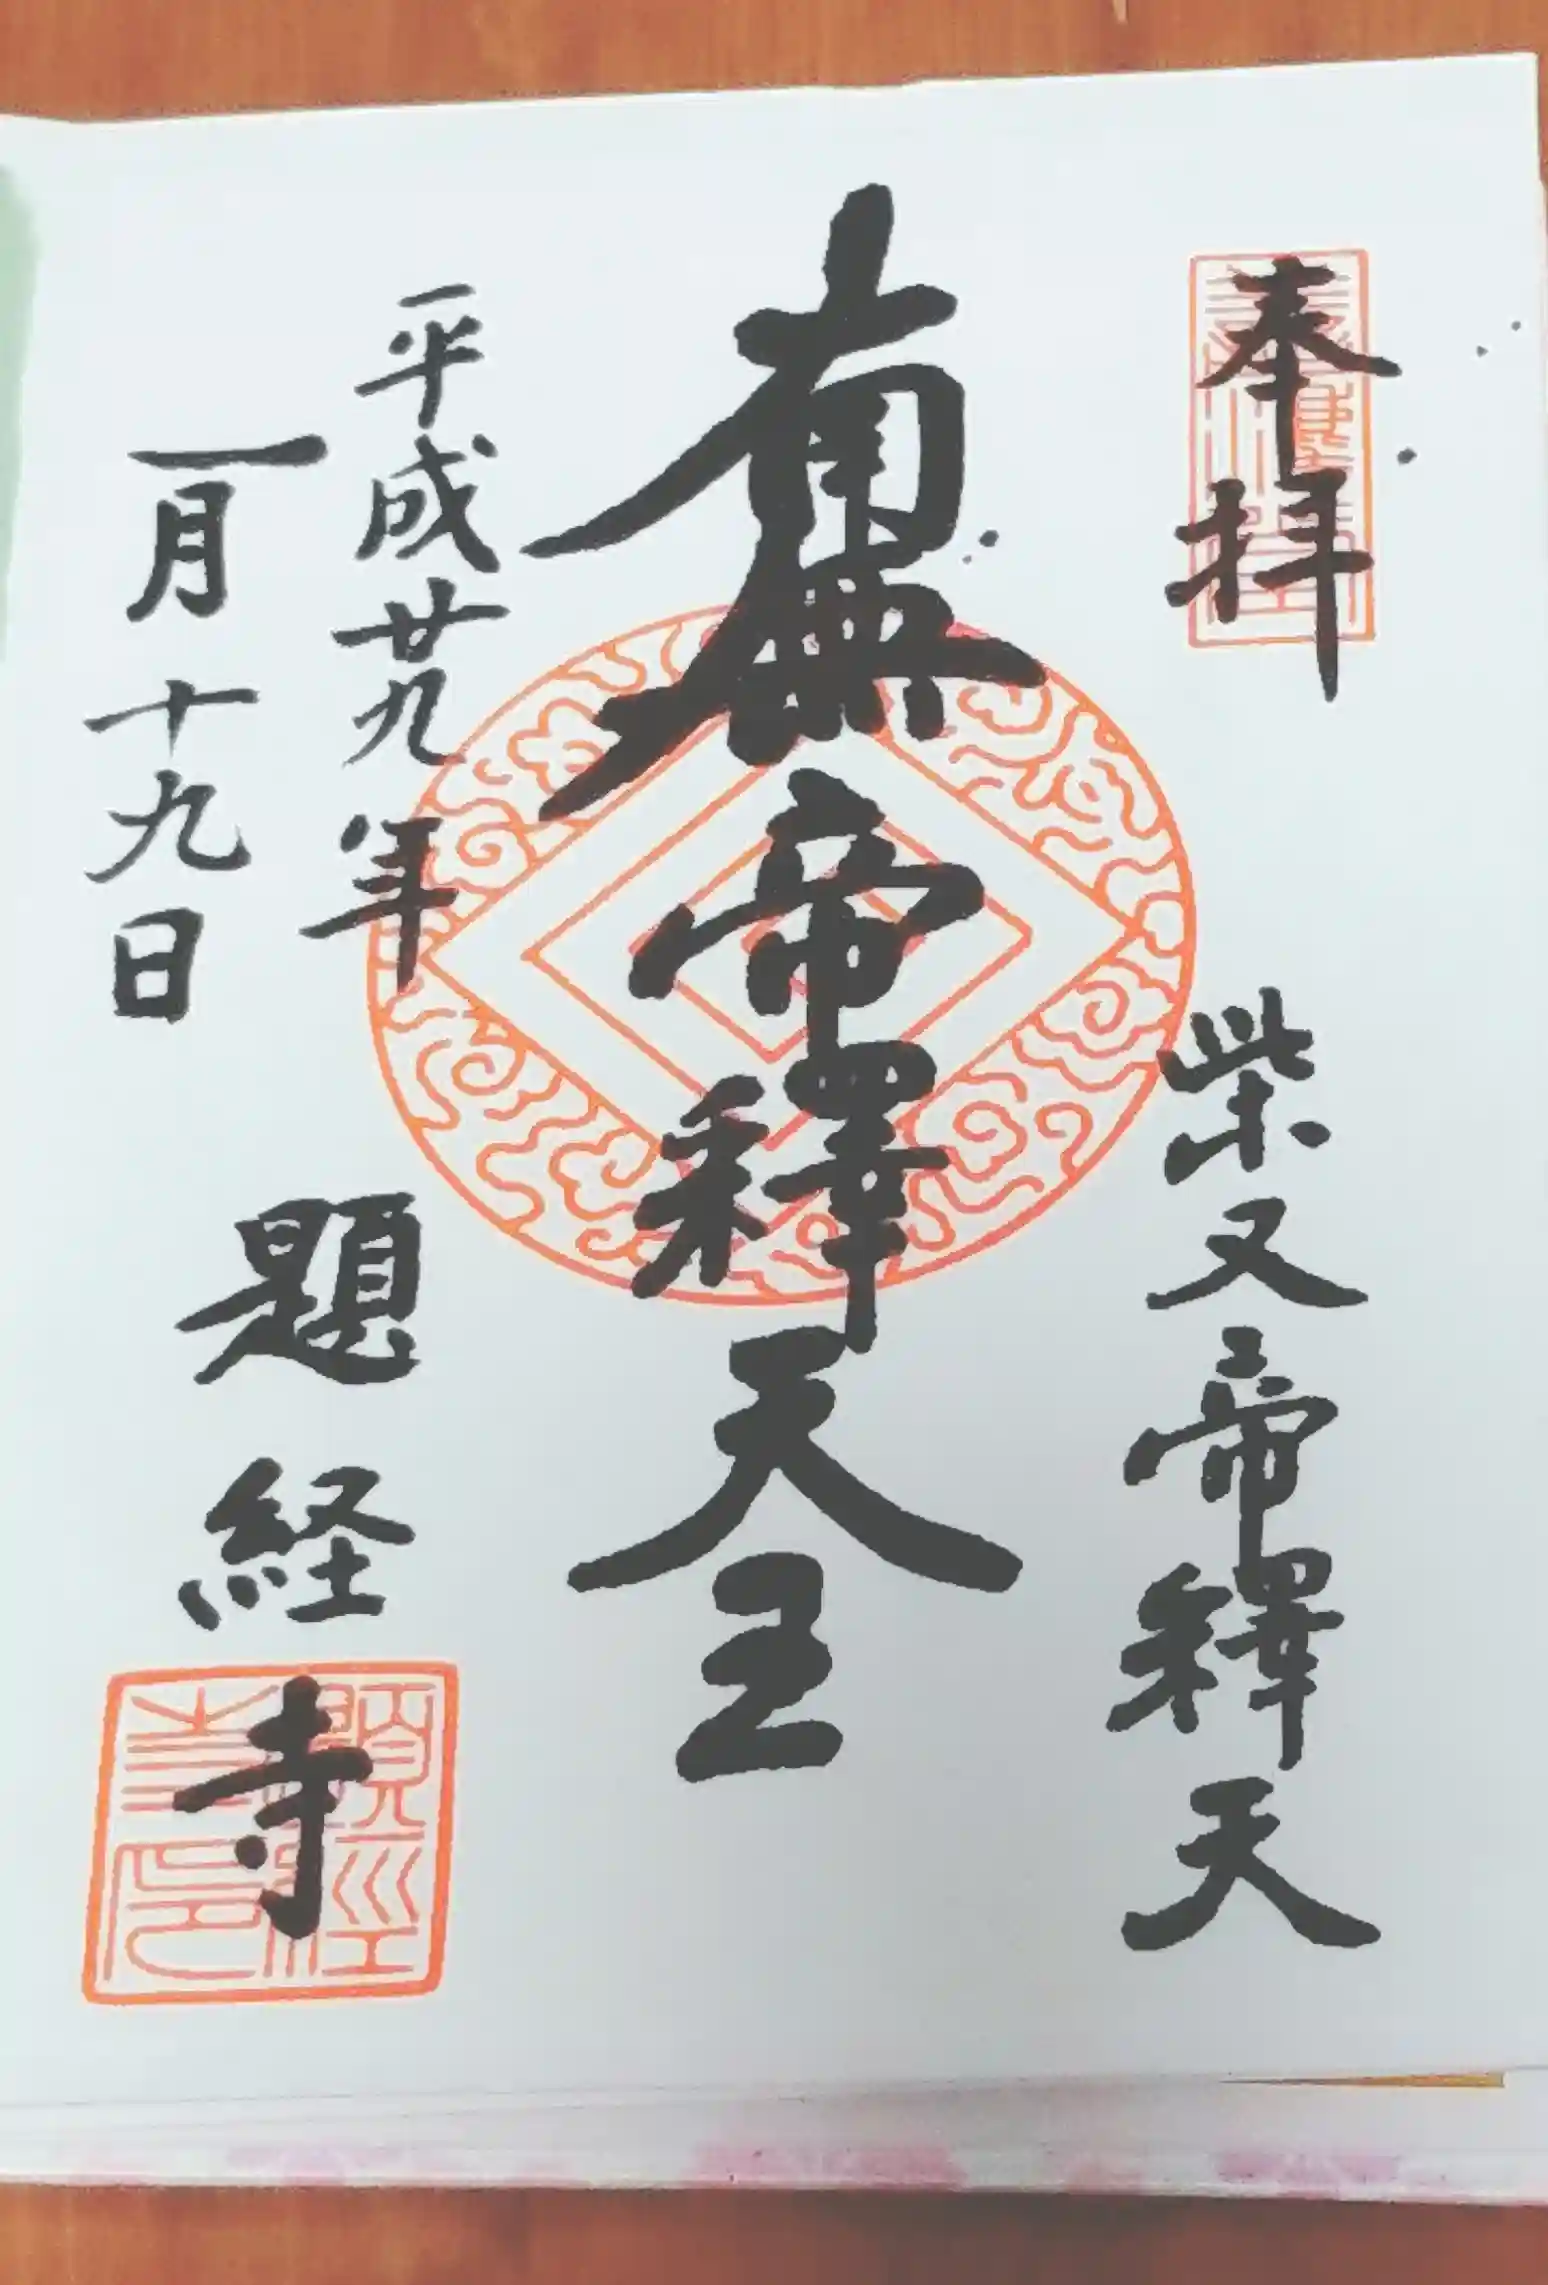 奉拝
柴又帝釋天
南無帝釋天王
平成廿九年
一月十九日
題経寺
題經寺印